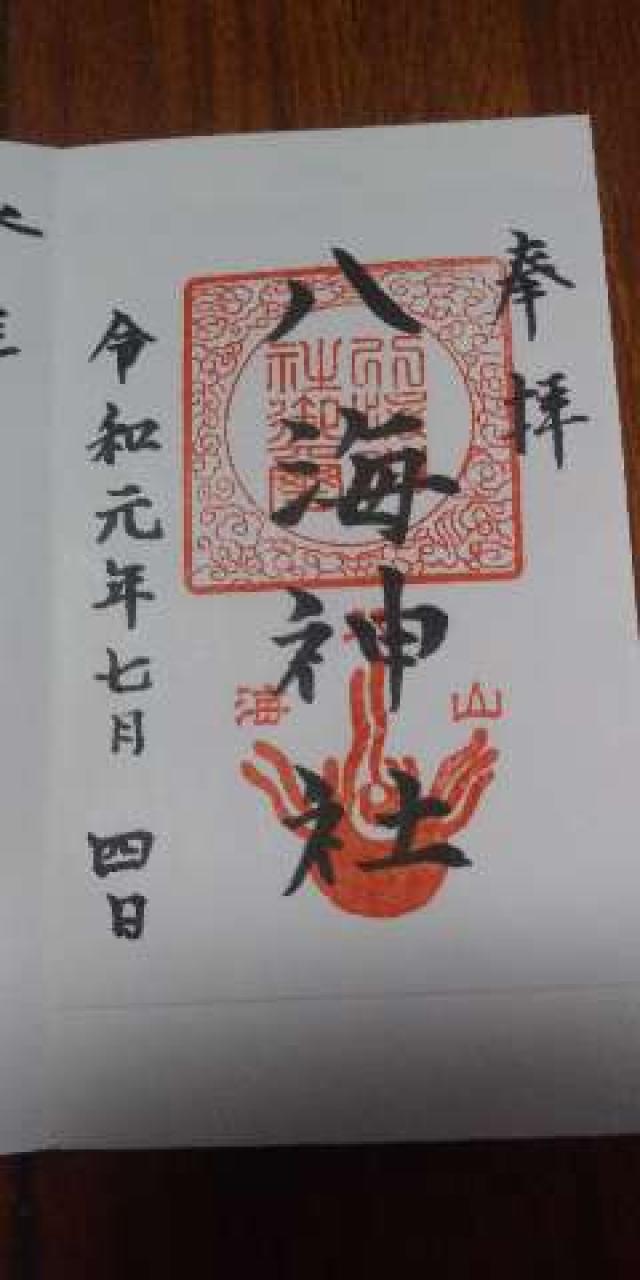 奉拝
八海神社
山
海
令和元年七月 四日